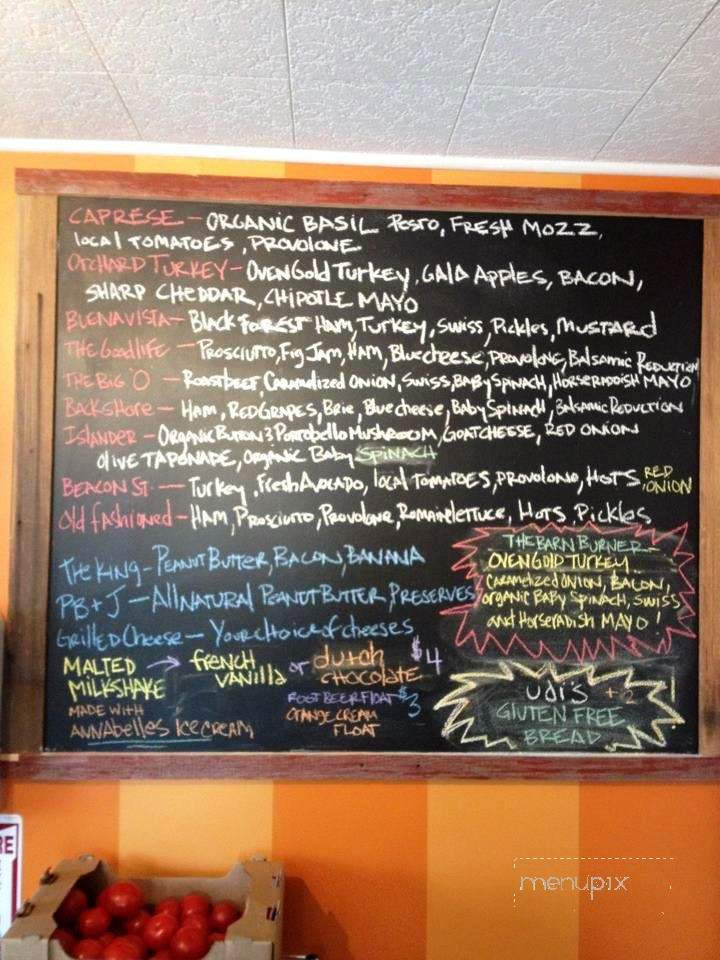 CAPRESE - ORGANIC BASIL PESTO, FRESH MOZZ,
local TOMATOES, PROVOLONE
ORCHARD TURKEY - OVENGOLD TURKEY, GALA APPLES, BACON,
SHARP CHEDDAR, CHIPOTLE MAYO
BUENAVISTA - BLACK FOREST HAM, TURKEY, SWISS, Pickles, MUSTARD
THE GoodLIFE - PROSCIUTTO, Fig JAM, HAM, Blue cheese, PROVOLONE, BALSAMIC REDUCTION
THE BIG "O" - ROAST BEEF, CARAMELIZED ONION, SWISS, BABY SPINACH, HORSERADISH MAYO
BACKSHORE - HAM, RED GRAPES, BRIE, Blue cheese, BABY SPINACH, BALSAMIC REDUCTION
ISLANDER - ORGANIC BUTTON & PORTOBELLO MUSHROOM, GOAT CHEESE, RED ONION
OLIVE TAPONADE, ORGANIC BABY SPINACH
BEACON ST. - TURKEY, FRESH AVOCADO, local TOMATOES, PROVOLONO, HOTS, RED ONION
Old fashioned - HAM, PROSCIUTTO, PROVOLONE, ROMAINE lettuce, HOTS, Pickles
THE KING - PEANUT BUTTER, BACON, BANANA
PB + J - ALL NATURAL PEANUT BUTTER, PRESERVES
GRILLED CHEESE - YOUR choice of cheeses
THE BARN BURNER -
OVENGOLD TURKEY
CARAMELIZED ONION, BACON,
ORGANIC BABY SPINACH, SWISS
and HORSERADISH MAYO!
MALTED MILKSHAKE → french VANILLA or dutch CHOCOLATE $4
MADE WITH
ANNABELLES ICE CREAM
ROOT BEER FLOAT $3
ORANGE CREAM
FLOAT
UDI'S +2
GLUTEN FREE
BREAD
RE
menupix